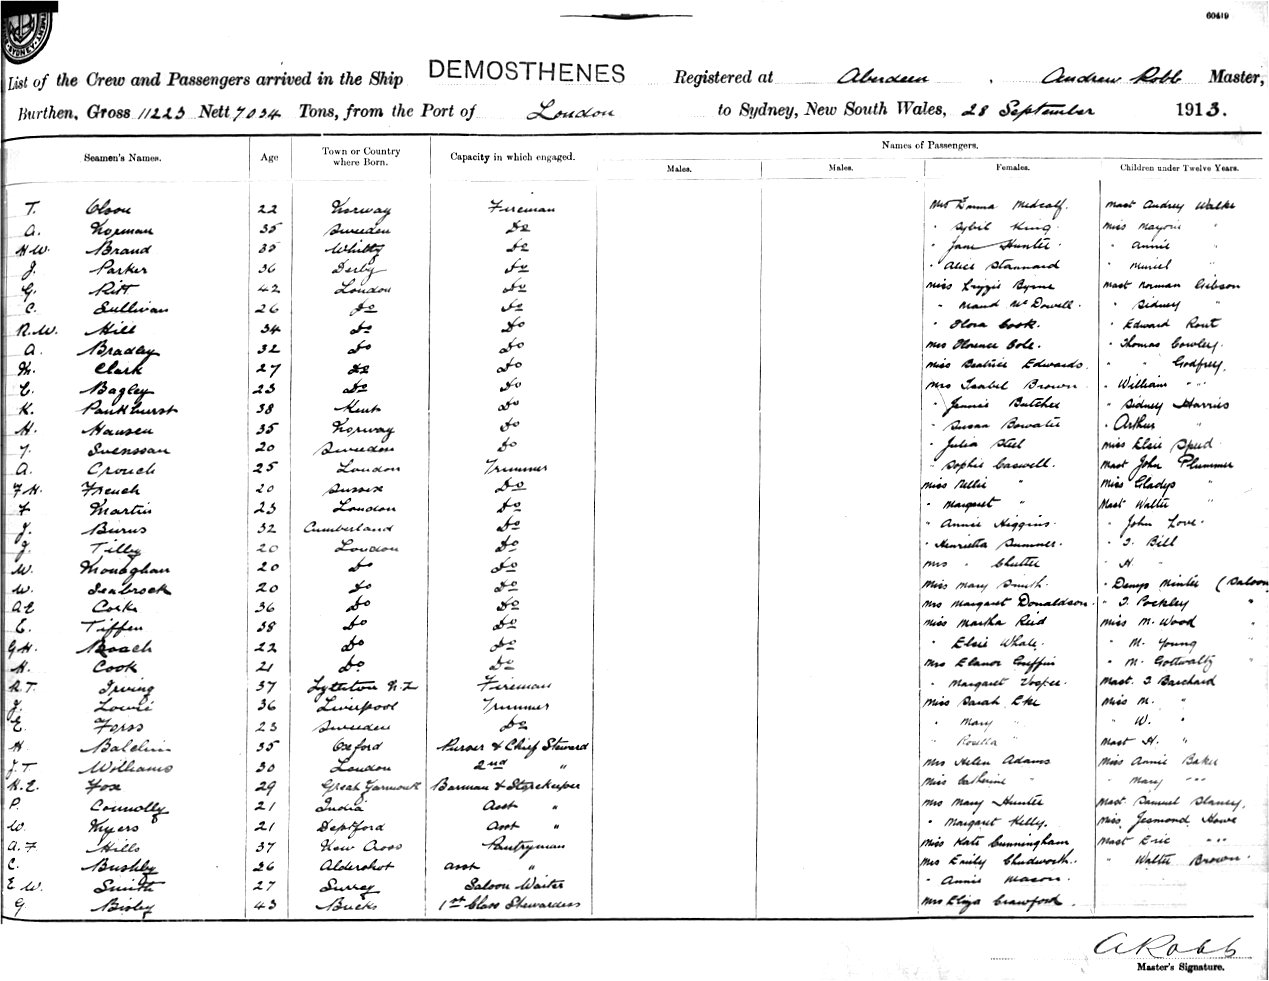 60419
List of the Crew and Passengers arrived in the Ship DEMOSTHENES Registered at Aberdeen, Andrew Robb Master,
Burthen, Gross 11223 Nett 7034 Tons, from the Port of London to Sydney, New South Wales, 28 September 1913.
Seamen's Names. Age Town or Country where Born. Capacity in which engaged. Names of Passengers.
Males. Males. Females. Children under Twelve Years.
T. Olson 22 Norway Fireman Mrs Emma Medcalf. Mast Audrey Walke
A. Norman 35 Sweeden Do " Sybil King. Miss Marjorie "
H W. Brand 35 Whitby Do " Jane Hunter " Annie "
J. Parker 36 Derby Do " Alice Stannard " Muriel "
G. Pitt 42 London Do Miss Lizzie Byrne Mast Norman Gibson
C. Sullivan 26 Do Do " Maud McDowell. " Sidney "
R. W. Hill 34 Do Do " Flora Cook. " Edward Rout
A. Bradley 32 Do Do Mrs Florence Cole. " Thomas Cowley.
M. Clark 27 Do Do Miss Beatrice Edwards. " " Godfrey.
E. Bagley 23 Do Do Mrs Isabel Brown " William " "
K. Pankhurst 38 Kent Do " Jennie Butcher " Sidney Harries
H. Hansen 35 Norway Do " Susan Bowater " Arthur "
Svenssan 20 Sweeden Do " Julia Steel Miss Elsie Spud
A. Crouch 25 London Trimmer " Sophie Caswell. Mast John Plummer
F H. French 20 Sussex Do Miss Nellie " Miss Gladys "
F Martin 23 London Do " Margaret " Mast Walter "
J. Burns 32 Cumberland Do " Annie Higgins. " John Love.
J. Tilley 20 London Do " Henrietta Sumner. " T. Bill
W. Monaghan 20 Do Do Mrs " Chutter " H "
W. Seabrook 20 Do Do Miss Mary Smith. " Denys Minter (Saloon
A E Cork 36 Do Do Mrs Margaret Donaldson. " T. Pockley "
E. Tiffen 38 Do Do Miss Martha Reid Miss M. Wood "
G H. Roach 22 Do Do " Elsie Whale. " M. Young "
H. Cook 21 Do Do Mrs Elanor Griffin " M. Gottwaltz "
R. T. Irving 37 Lyttelton N. Z Fireman " Margaret Vosper. Mast. T. Barchard
J. Lowrie 36 Liverpool Trimmer Miss Sarah Eke Miss M. "
E. Forss 23 Sweeden Do " Mary " " W. "
H Baldwin 35 Oxford Purser & Chief Steward " Rosetta " Mast H. "
J. T. Williams 30 London 2nd " Mrs Helen Adams Miss Annie Baker
H. E. Fox 29 Great Yarmouth Barman & Storekeeper Miss Catherine " " Mary " "
P. Connolly 21 India Asst " Mrs Mary Hunter Mast Samuel Slaney.
W. Myers 21 Deptford Asst " " Margaret Kelly. Miss Jesmond Howe
A. F Hills 37 New Cross Pantryman Miss Kate Cunningham Mast Eric " "
C. Bushby 26 Aldershot Asst " Mrs Emily Chudworth. " Walter Brown.
E W. Smith 27 Surrey Saloon Waiter " Annie Mason.
G Bisley 43 Bucks 1st Class Stewardess Mrs Eliza Crawford.
A Robb
Master's Signature.